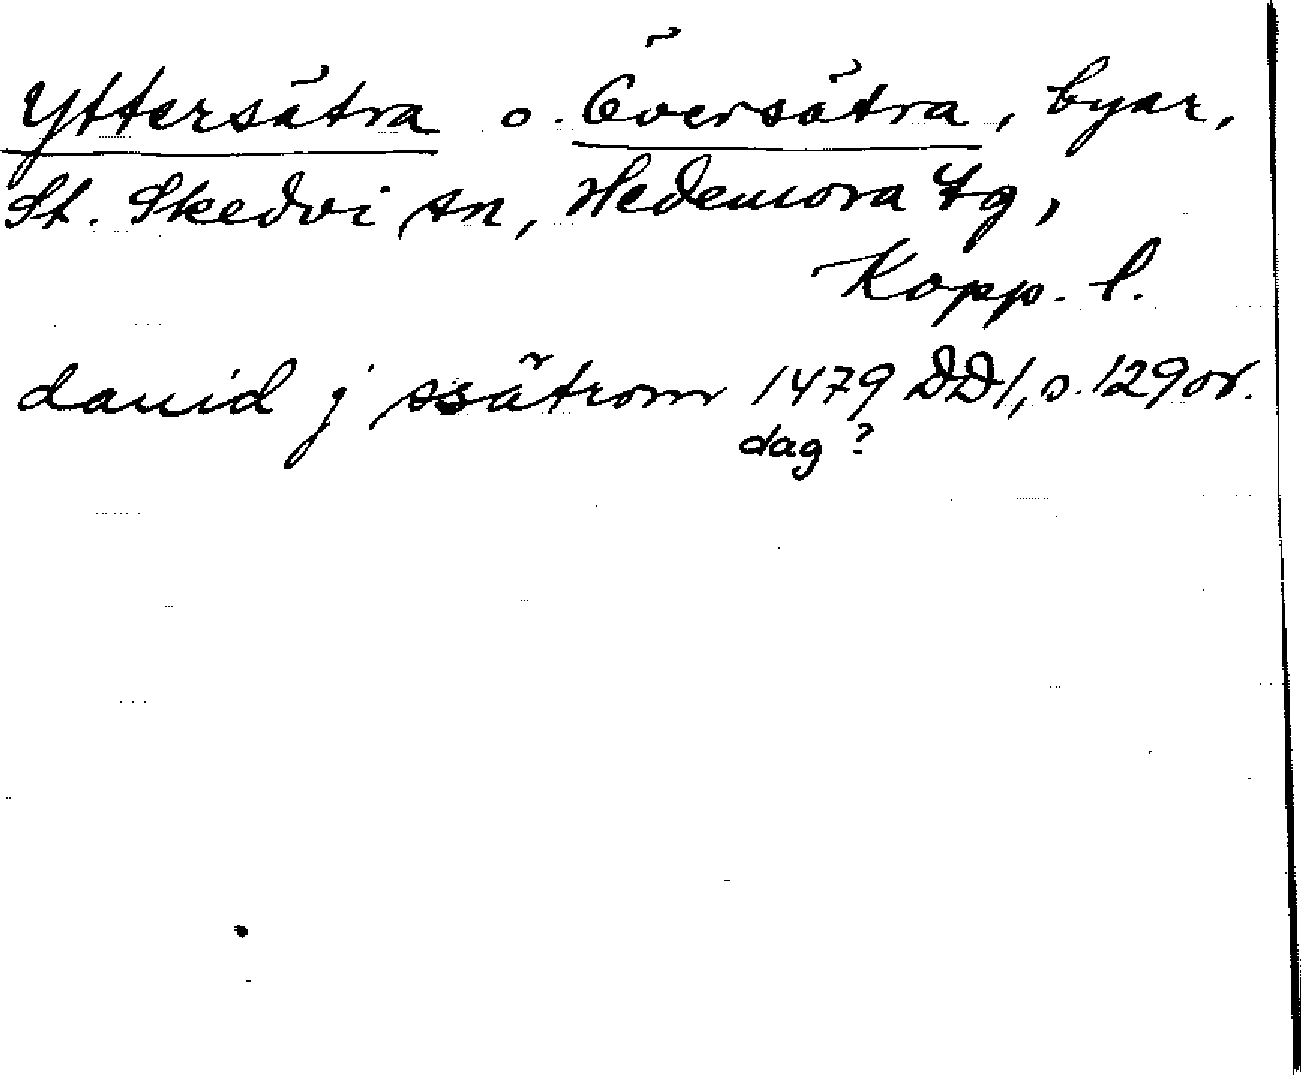 Yttersätra o. Översätra, byar,
St. Skedvi sn, Hedemora tg,
Kopp. l.
dauid j ssätrom 1479 DD1, s. 129 or.
dag?